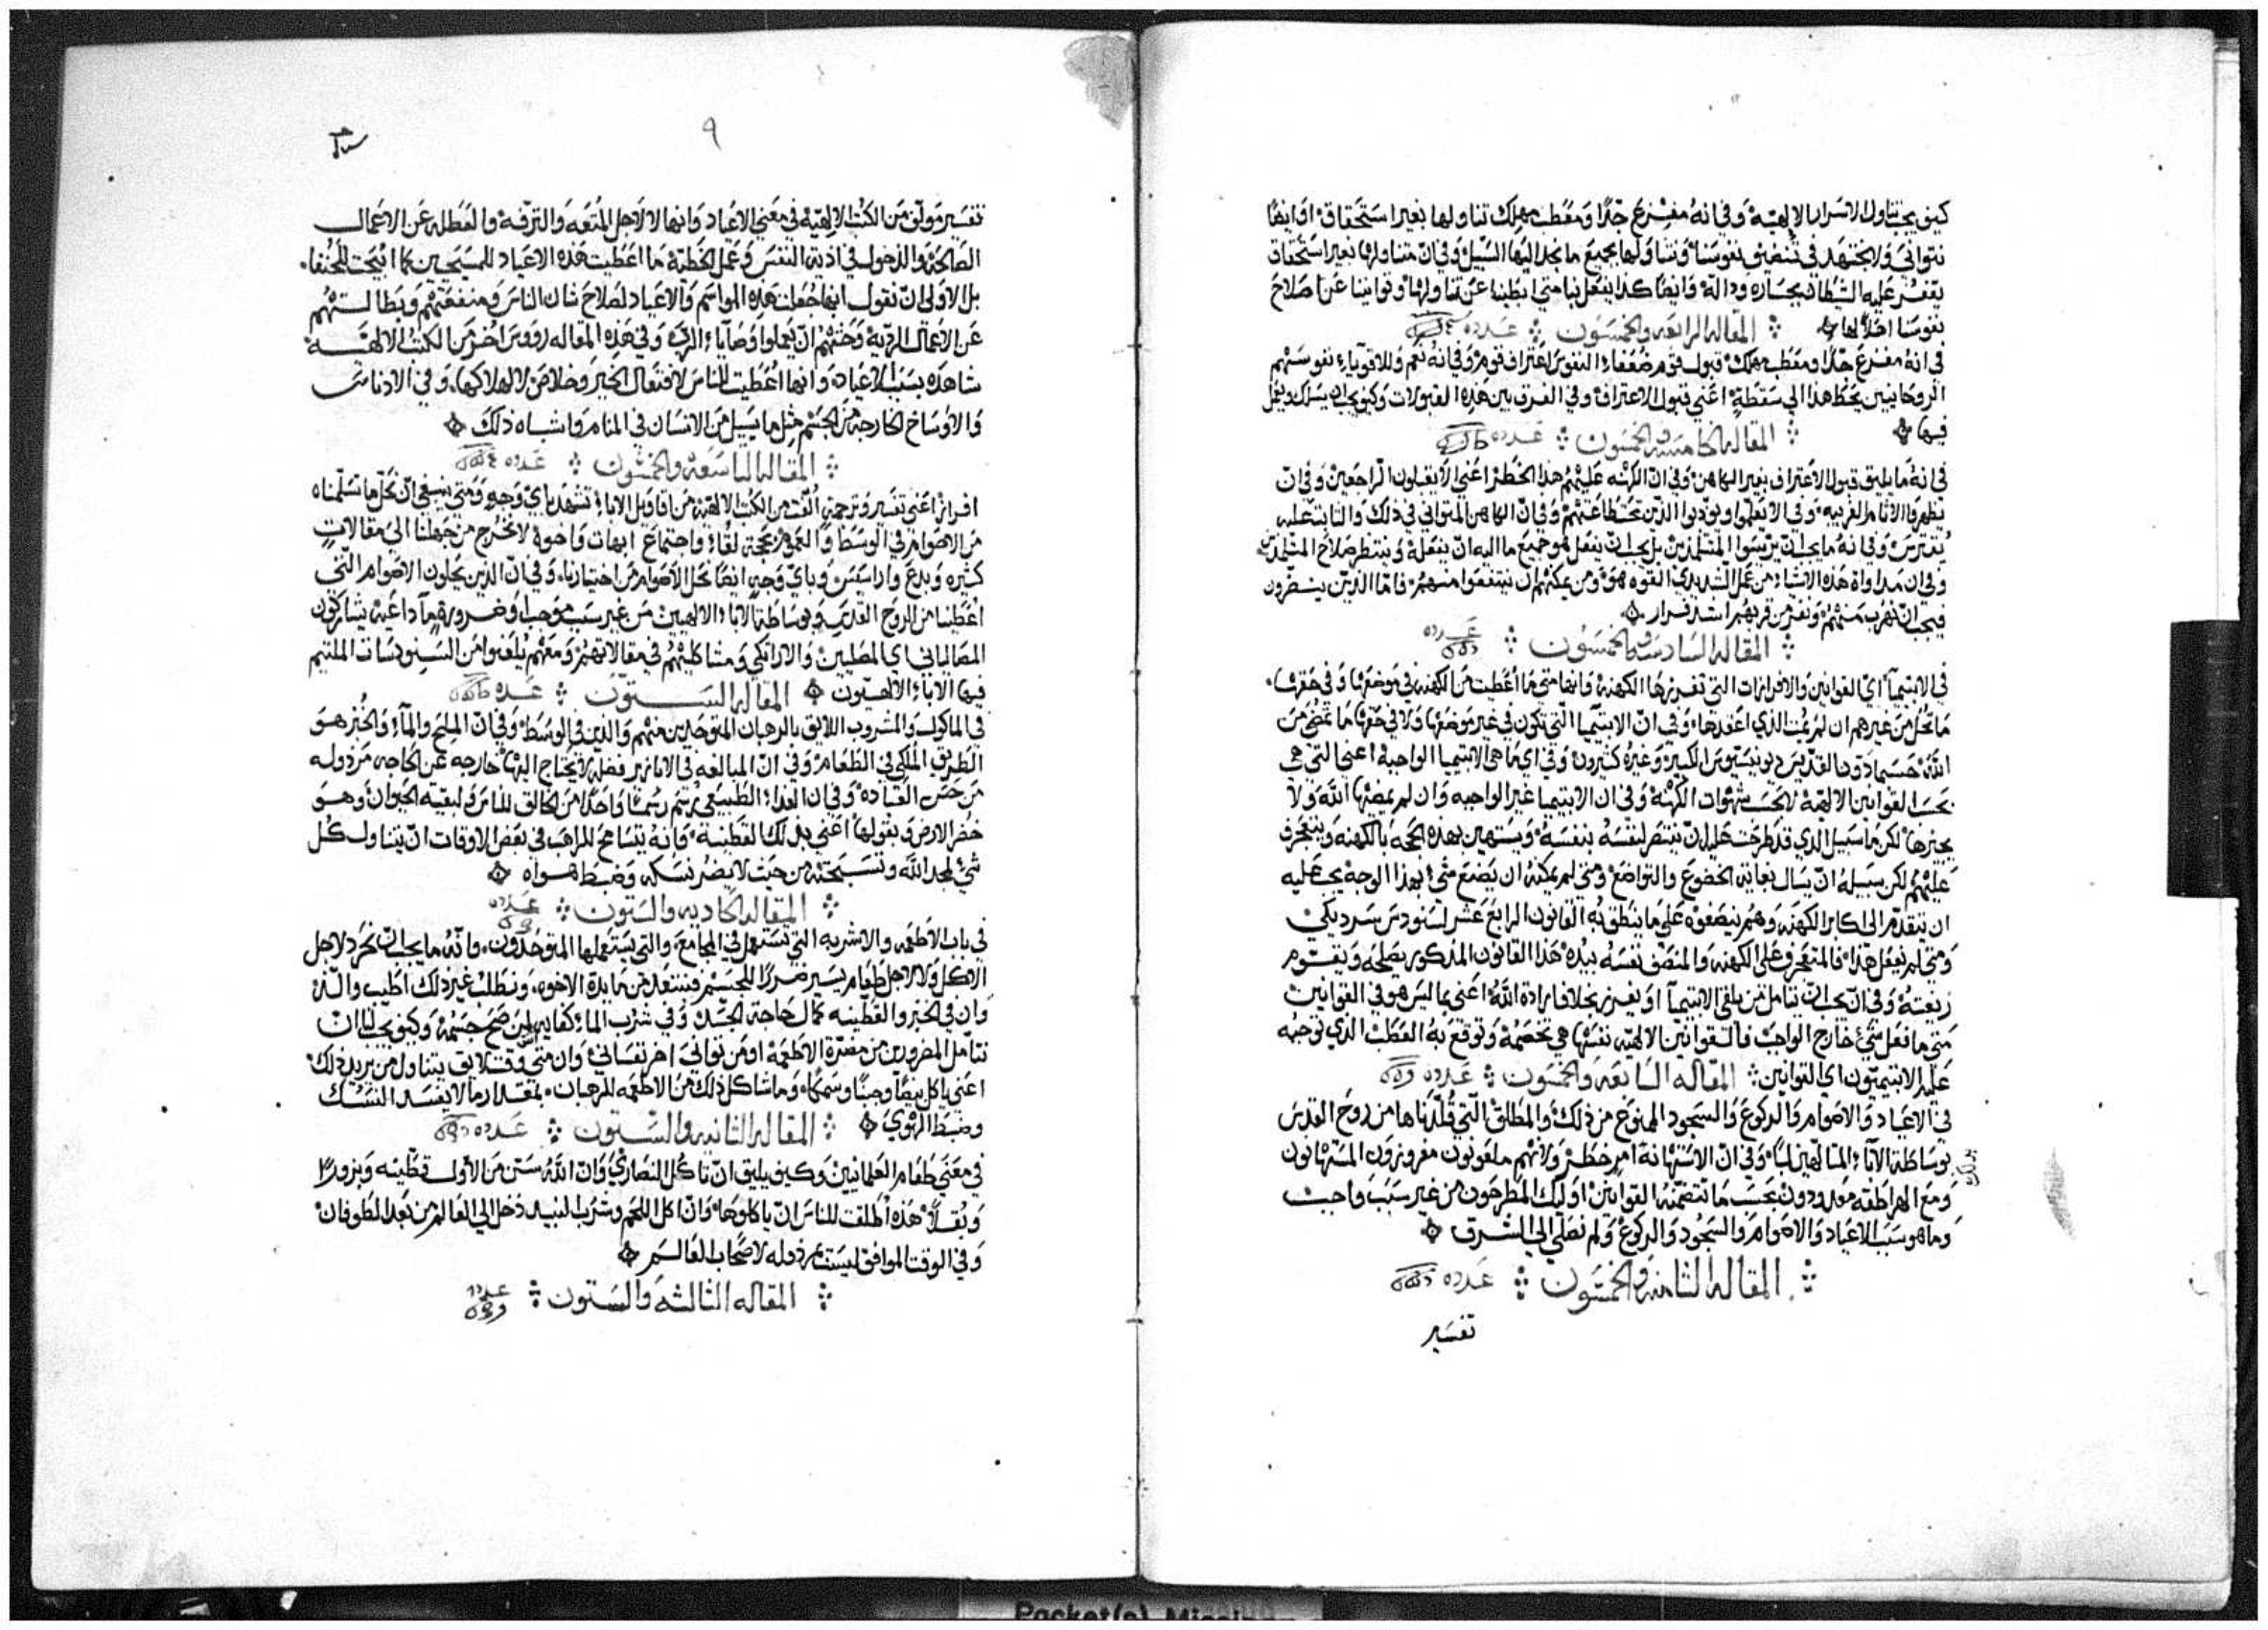 كيف يجب تناول الاسرار الالهية وفي انه مفزع جدًا ومعطب مهلك تناولها بغير استحقاق او ايضًا
نتوانى ولا نجتهد في تنضيف نفوسنا وتناولها بجميع ما نجد اليها السبيل وفي ان متناولها بغير استحقاق
يقفز عليه الشيطان بجساره ودالة وايضًا كذا يفعل بنا متى ابطينا عن تناولها وتوانينا عن اصلاح
نفوسنا اهلًا لها
المقاله الرابعه والخمسون عدده
في انه مفزع جدًا ومعطب مهلك قبول قوم ضعفاء النفوس اعتراف قوم وفي انه نعم وللاقوياء نفوسهم
الروحانيين يحط هذا الى سقطة اعني قبول الاعتراف وفي الفرق بين هذه القبولات وكيف يجب ان يسلك ويعمل
فيها
المقاله الخامسه والخمسون عدده
في انه ما يليق قبول الاعتراف بغير الكاهن وفي ان الكهنه عليهم هذا الخطر اعني لا يقبلون الراجعين وفي ان
يظهروا الاثام الغريبه وفي الا يعلموا ويودبوا الذين تحت طاعتهم وفي ان الكاهن المتواني في ذلك والثابت عليه
يفترس وفي انه ما يجب ان يريسوا المتلمذين بل يجب ان يفعل هو جميع ما اليه ان يفعله وينتظر صلاح المتلمذين
وفي ان مداواة هذه الاشياء من عمل الشديدي القوه هو ومن يمكنهم ان ينتفعوا منهم فاما الذين يستضرون
فيجب ان نهرب منهم ونفر من قربهم اشد فرار
المقاله السادسه والخمسون عدده
في الابتيميا اي القوانين والافرازات التي تفرزها الكهنه وانها متى ما اعطيت من الكهنه في موضعها وفي حقها
ما تحل من غيرهم ان لم يمت الذي اعقدها وفي ان الابتيميا التي تكون في غير موضعها ولا في حقها ما تمضى من
الله حسبما دون القديس ديونيسيوس الكبير وغيره كثيرون وفي اي ما هي الابتيميا الواجبه اعني التي هي
بحسب القوانين الالهية لا بحسب شهوات الكهنة وفي ان الابتيميا غير الواجبه وان لم يمضها الله ولا
يجيزها لكن ما سبيل الذي قد طرحت عليه ان ينتصر لنفسه بنفسه ويستهين بهذه الحجه بالكهنه ويتعجرف
عليهم لكن سبيله ان يسال بغاية الخضوع والتواضع ومتى لم يمكنه ان يصنع شي بهذا الوجه يجب عليه
ان يتقدم الى اكابر الكهنه وهم ينصفوه على ما ينطق به القانون الرابع عشر لسنودس سرديكي
ومتى لم يفعل هذا فالمتعجرف على الكهنه والمنصف نفسه بيده هذا القانون المذكور يصلحه ويقوم
زيغته وفي ان يجب ان يتامل من يلقي الابتيميا او يفرز بخلاف ارادة الله اعني بما ليس هو في القوانين
متى ما فعل شي خارج الواجب فالقوانين الالهيه نفسها هي تخصمه وتوقع به العطب الذي توجبه
عليه الابتيميون اي القوانين المقاله السابعه والخمسون عدده
في الاعياد والاصوام والركوع والسجود الممنوع من ذلك والمطلق التي قلدناها من روح القدس
بوساطة الاباء المتالهين لنا وفي ان الاستهانة امر خطر ولانهم ملعونون مفروزون المستهانون
ومع الهراطقه معدودون بحسب ما تتضمنه القوانين اوليك المطرحون من غير سبب واجب
وما هو سبب الاعياد والاصوام والسجود والركوع ولم نصلي الى الشرق
المقاله الثامنه والخمسون عدده
تفسير
٩
تفسير مولف من الكتب الالهية في معنى الاعياد وانها لا لاجل المتعه والترفه والعطله عن الاعمال
الصالحة والدخول في اذية النفس وعمل الخطية ما اعطيت هذه الاعياد للمسيحيين كما ابيحت للحنفا
بل الاولى ان نقول انها جعلت هذه المواسم والاعياد لصلاح شان الناس ومنفعتهم وبطالتهم
عن الاعمال الرديه وحثهم ان يعملوا وصايا الرب وفي هذه المقاله رووس اخر من الكتب الالهيه
شاهده بسبب الاعياد وانها اعطيت للناس لافتعال الخير وخلاص لا لهلاكها وفي الادناس
والاوساخ الخارجه من الجسم مثل ما يسيل من الانسان في المنام وما شباه ذلك
المقاله التاسعه والخمسون عدده
افراز اعني تفسير وترجمة الفت من الكتب الالهيه من اقاويل الاباء تشهد باي وجه ومتى ينبغي ان نحل ما تسلمناه
من الاصوام في الوسط والعمق بحجة لقاء واجتماع ابهات واخوة لا تخرج من جهلنا الى مقالات
كثيره وبدع واراسيس وباي وجه ايضًا نحل الاصوام من اختيارنا وفي ان الذين يحلون الاصوام التي
اعطينا من الروح القدس وبوساطة الاباء الالهيين من غير سبب موجب او ضرورة ما داعيه يشاركون
المصالياني اي المصليين والاراتكي ومشاكليهم في مقالاتهم ومعهم يلعنوا من السينودسات الملتيم
فيها الاباء الالهيون المقاله الستون عدده
في الماكول والمشروب اللايق بالرهبان المتوحدين منهم والذين في الوسط وفي ان الملح والماء والخبز هو
الطريق الملكي في الطعام وفي ان المبالغه في الابازير فضلة لا يحتاج اليها خارجه عن الحاجه مرذوله
من حسن العباده وفي ان الغداء الطبيعي رسم رسمًا واحدًا من الخالق للناس ولبقية الحيوان وهو
خضر الارض وبقولها اعني بذلك القطنية وانه يتسامح للراهب في بعض الاوقات ان يتناول كل
شي لمجد الله وتسبحته من حيث لا يضر نسكه وضبط هواه
المقاله الحاديه والستون عدده
في باب الاطعمه والاشربه التي تستعمل في المجامع والتي يستعملها المتوحدون وانه ما يجب ان نحرد لاجل
الاكل ولا لاجل طعام يسير ضررًا للجسم فنتبعد من مايدة الاخوه ونطلب غير ذلك اطيب والذ
وان في الخبز والقطنيه كمال حاجة الجسد وفي شرب الماء كفايه لمن صح جسمه وكيف يجب لنا ان
نتامل المضرورين من مضرة الاطعمة او من تواني اخر نفساني وان متى وقت لايق يتناول من يريد ذلك
اعني ياكل بيضًا وجبنًا وسمكًا وما شاكل ذلك من الاطعمه للرهبان بمقدار ما لا يفسد النسك
وضبط الهوى المقاله الثانيه والستون عدده
في معنى طعام العلمانيين وكيف يليق ان تاكل النصارى وان الله سن من الاول قطنيه وبزورًا
وبقلًا هذه اطلقت للناس ان ياكلوها وان اكل اللحم وشرب النبيذ دخل الى العالم من بعد الطوفان
وفي الوقت الموافق ليست مرذوله لاصحاب العالم
المقاله الثالثه والستون عدده